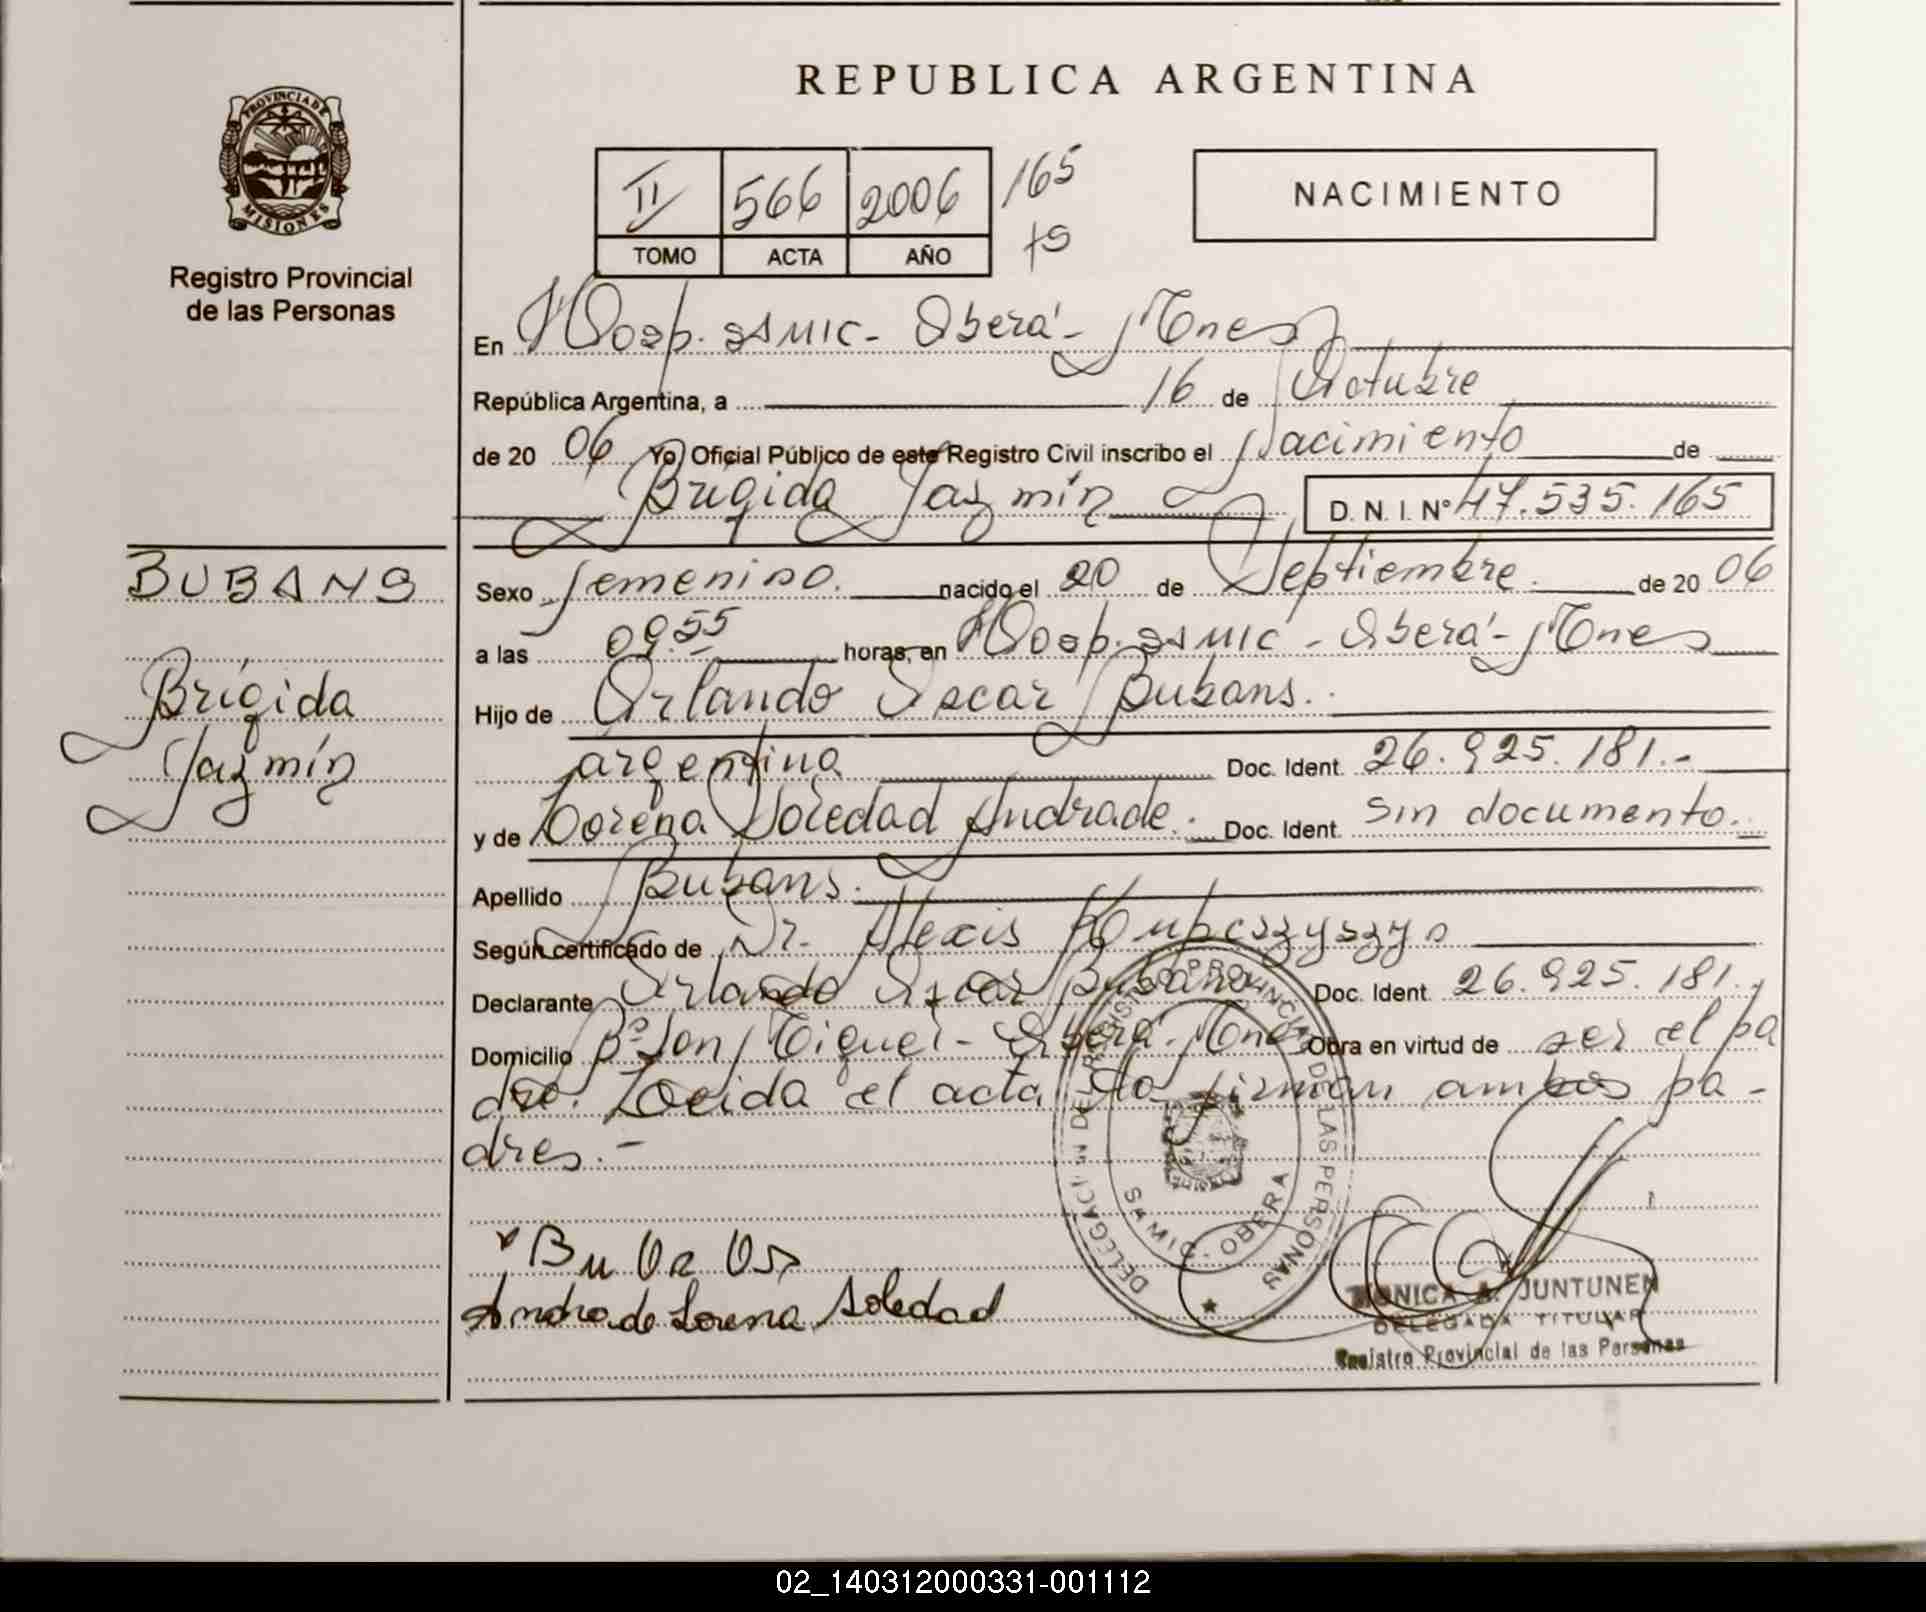 REPUBLICA ARGENTINA
PROVINCIA DE
MISIONES
Registro Provincial
de las Personas
II 566 2006 165
TOMO ACTA AÑO
NACIMIENTO
En Hosp. SAMIC - Oberá - Mnes
República Argentina, a 16 de Octubre
de 20 06 Yo, Oficial Público de este Registro Civil inscribo el Nacimiento de
Brígida Jazmín D. N. I. Nº 47.535.165
BUBANS
Brígida
Jazmín
Sexo femenino. nacido el 20 de Septiembre. de 20 06
a las 09.55 horas, en Hosp. SAMIC - Oberá - Mnes
Hijo de Orlando Oscar Bubans.
argentina Doc. Ident. 26.925.181.-
y de Lorena Soledad Andrade. Doc. Ident. Sin documento.
Apellido Bubans.
Según certificado de Dr. Alexis
Declarante Orlando Oscar Bubans Doc. Ident. 26.925.181.
Domicilio Bº San Miguel - Oberá - Mnes Obra en virtud de ser el pa
dre. Leída el acta la firman ambos pa-
dres. -
DELEGACION DEL REGISTRO PROVINCIAL DE LAS PERSONAS
SAMIC - OBERA
Andrade Lorena Soledad
MONICA A. JUNTUNEN
DELEGADA TITULAR
Registro Provincial de las Personas
02_140312000331-001112